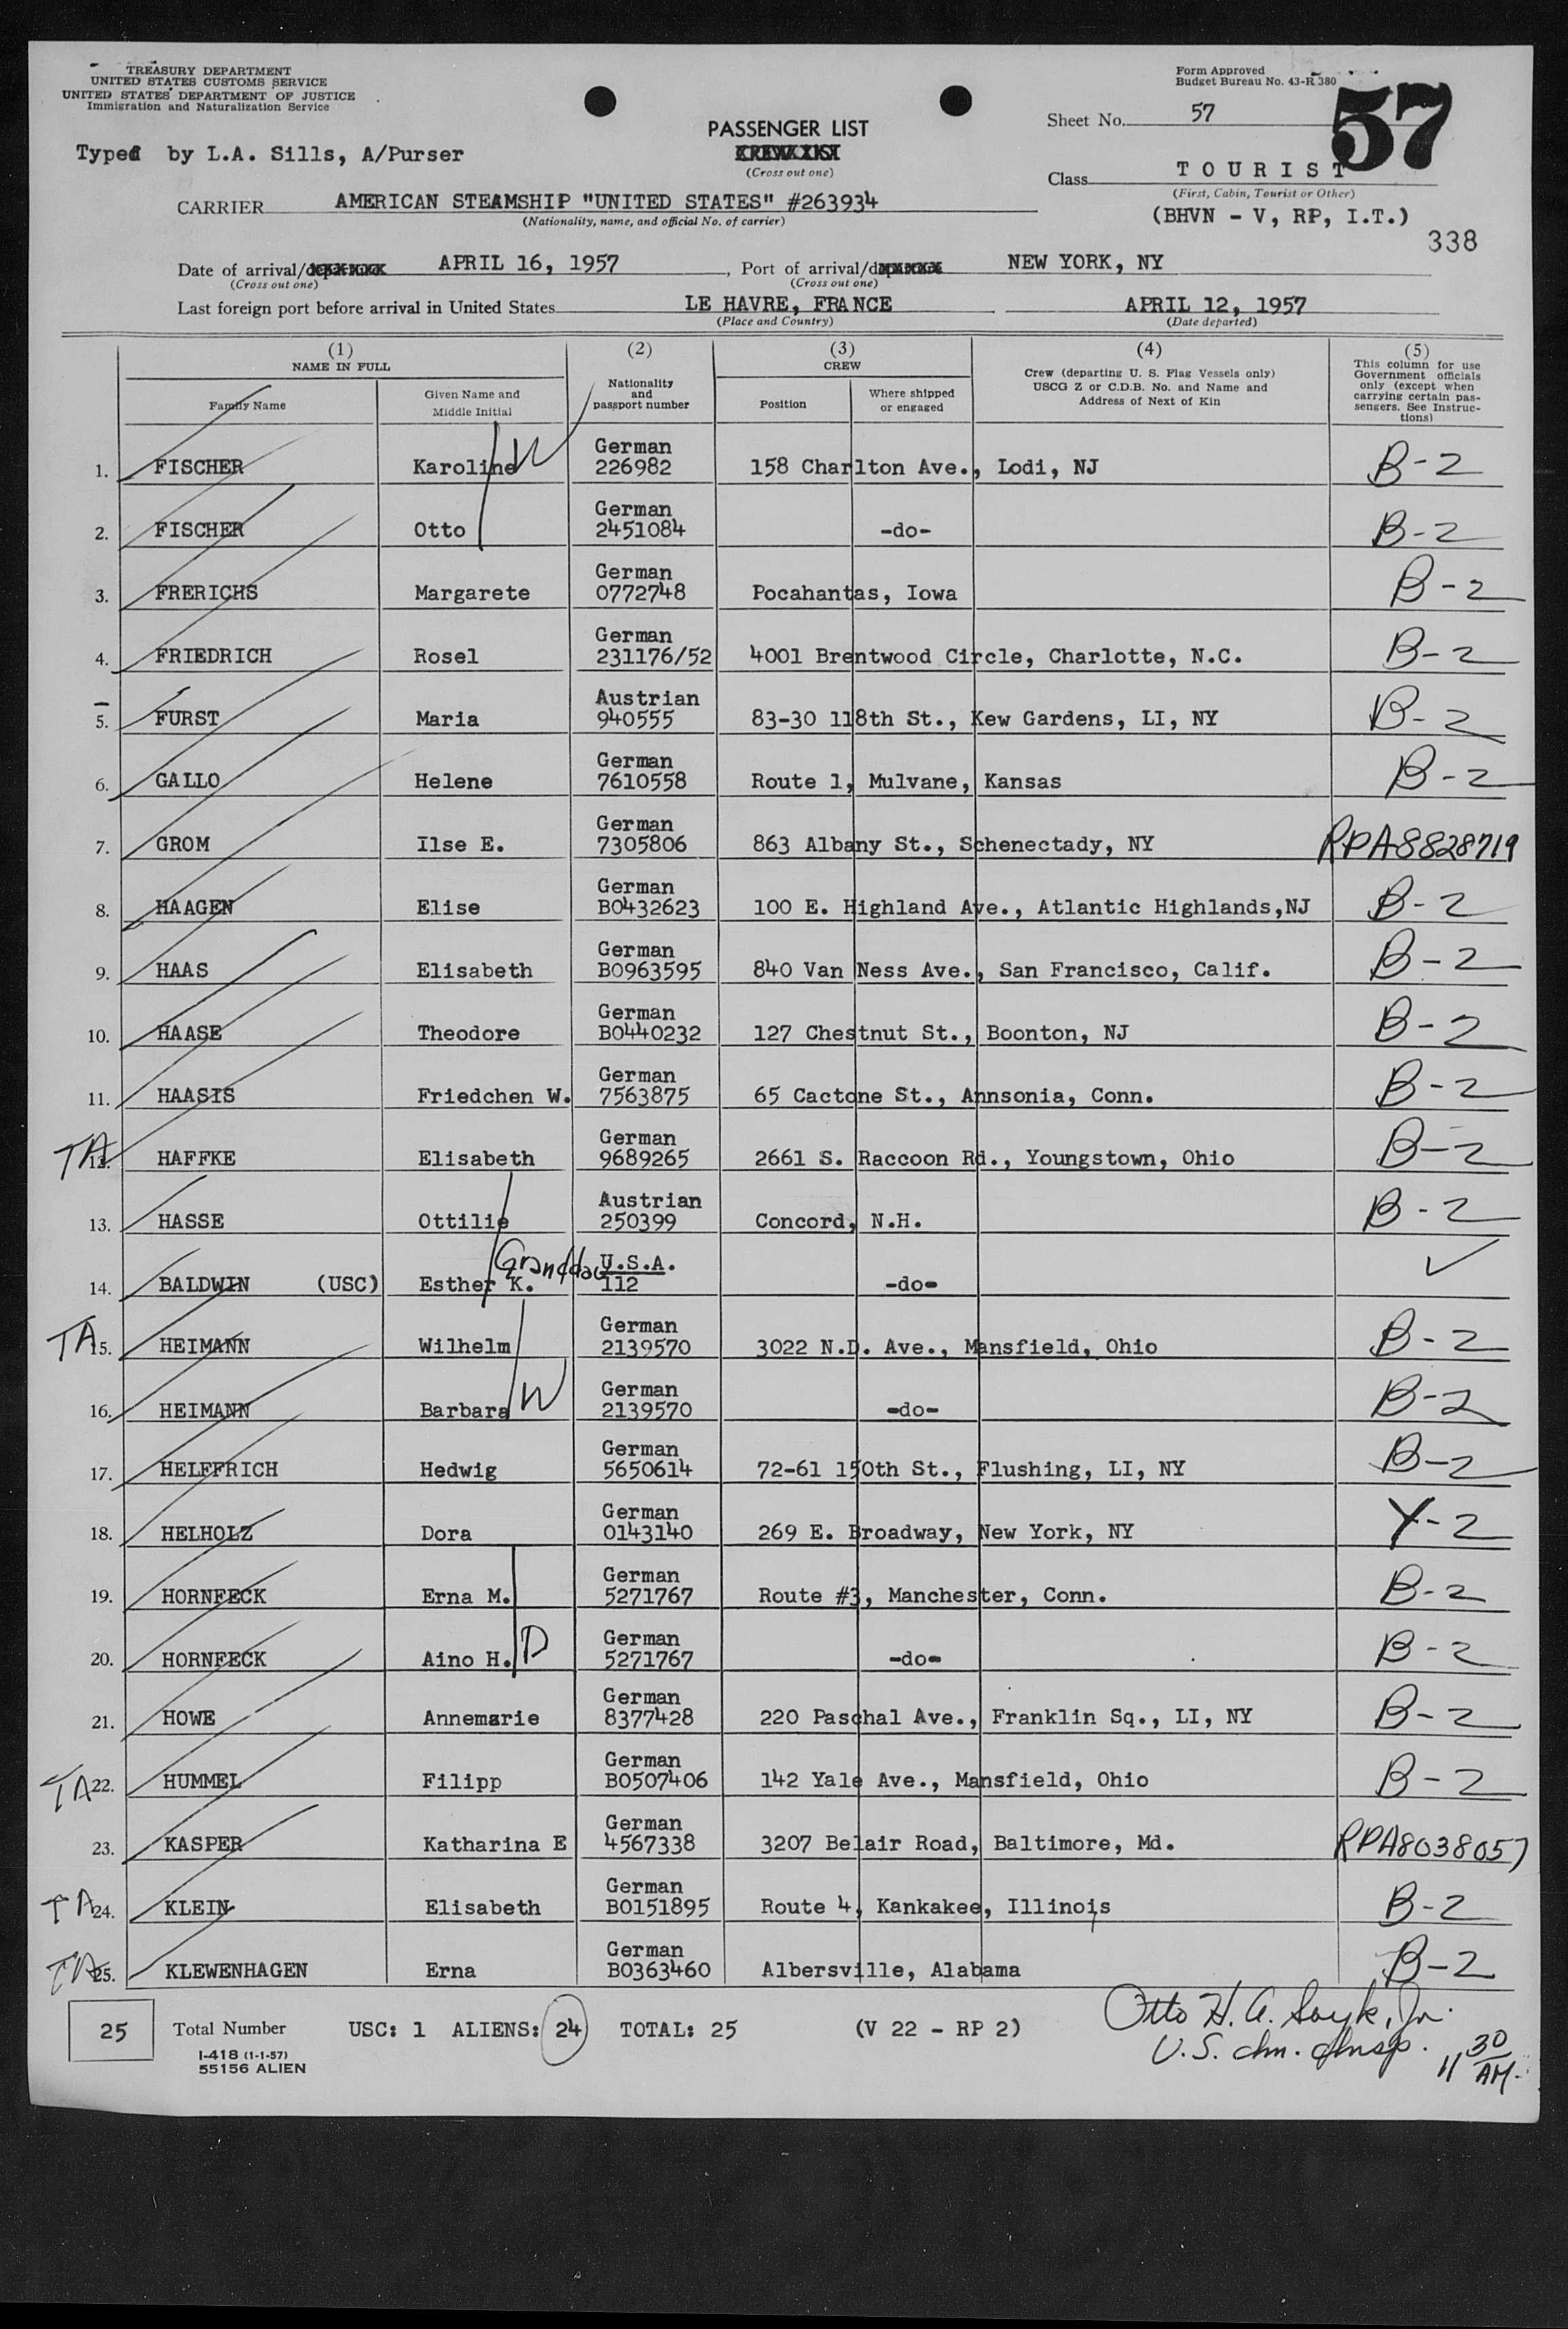 TREASURY DEPARTMENT
UNITED STATES CUSTOMS SERVICE
UNITED STATES DEPARTMENT OF JUSTICE
Immigration and Naturalization Service
Form Approved
Budget Bureau No. 43-R 380
Typed by L.A. Sills, A/Purser
PASSENGER LIST
(Cross out one)
Sheet No. 57
57
Class TOURIST
(First, Cabin, Tourist or Other)
(BHVN - V, RP, I.T.)
338
CARRIER AMERICAN STEAMSHIP "UNITED STATES" #263934
(Nationality, name, and official No. of carrier)
Date of arrival/ APRIL 16, 1957, Port of arrival/ NEW YORK, NY
(Cross out one) (Cross out one)
Last foreign port before arrival in United States LE HAVRE, FRANCE APRIL 12, 1957
(Place and Country) (Date departed)
(1) NAME IN FULL
Family Name
Given Name and Middle Initial
(2) Nationality and passport number
(3) CREW
Position
Where shipped or engaged
(4) Crew (departing U. S. Flag Vessels only) USCG Z or C.D.B. No. and Name and Address of Next of Kin
(5) This column for use Government officials only (except when carrying certain passengers. See Instructions)
1. FISCHER Karoline W German 226982 158 Charlton Ave., Lodi, NJ B-2
2. FISCHER Otto German 2451084 -do- B-2
3. FRERICHS Margarete German 0772748 Pocahantas, Iowa B-2
4. FRIEDRICH Rosel German 231176/52 4001 Brentwood Circle, Charlotte, N.C. B-2
5. FURST Maria Austrian 940555 83-30 118th St., Kew Gardens, LI, NY B-2
6. GALLO Helene German 7610558 Route 1, Mulvane, Kansas B-2
7. GROM Ilse E. German 7305806 863 Albany St., Schenectady, NY RPA8828719
8. HAAGEN Elise German B0432623 100 E. Highland Ave., Atlantic Highlands,NJ B-2
9. HAAS Elisabeth German B0963595 840 Van Ness Ave., San Francisco, Calif. B-2
10. HAASE Theodore German B0440232 127 Chestnut St., Boonton, NJ B-2
11. HAASIS Friedchen W. German 7563875 65 Cactone St., Annsonia, Conn. B-2
TA 12. HAFFKE Elisabeth German 9689265 2661 S. Raccoon Rd., Youngstown, Ohio B-2
13. HASSE Ottilie Austrian 250399 Concord, N.H. B-2
14. BALDWIN (USC) Esther K. Granddau U.S.A. 112 -do-
TA 15. HEIMANN Wilhelm German 2139570 3022 N.D. Ave., Mansfield, Ohio B-2
16. HEIMANN Barbara W German 2139570 -do- B-2
17. HELFFRICH Hedwig German 5650614 72-61 150th St., Flushing, LI, NY B-2
18. HELHOLZ Dora German 0143140 269 E. Broadway, New York, NY Y-2
19. HORNFECK Erna M. German 5271767 Route #3, Manchester, Conn. B-2
20. HORNFECK Aino H. D German 5271767 -do- B-2
21. HOWE Annemarie German 8377428 220 Paschal Ave., Franklin Sq., LI, NY B-2
TA 22. HUMMEL Filipp German B0507406 142 Yale Ave., Mansfield, Ohio B-2
23. KASPER Katharina E German 4567338 3207 Belair Road, Baltimore, Md. RPA8038057
TA 24. KLEIN Elisabeth German B0151895 Route 4, Kankakee, Illinois B-2
TA 25. KLEWENHAGEN Erna German B0363460 Albersville, Alabama B-2
25 Total Number USC: 1 ALIENS: 24 TOTAL: 25 (V 22 - RP 2)
I-418 (1-1-57)
55156 ALIEN
Otto H. A. Jr.
U.S.
11 30 AM